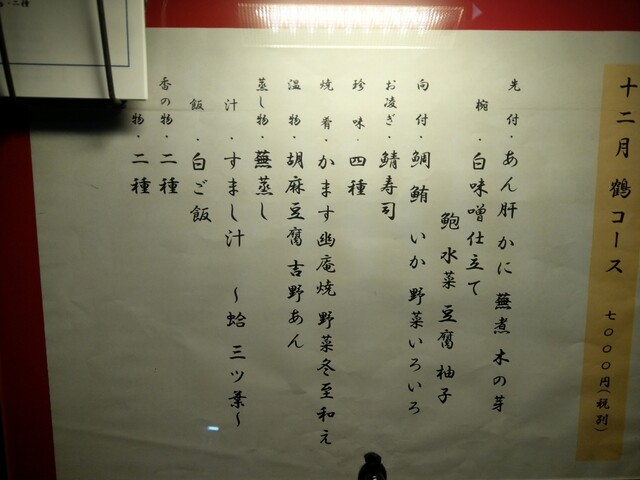 十二月 鶴コース 七〇〇〇円(税別)
先付・あん肝 かに 蕪煮 木の芽
椀・白味噌仕立て
鮑 水菜 豆腐 柚子
向付・鯛 鮪 いか 野菜いろいろ
お凌ぎ・鯖寿司
珍味・四種
焼肴・かます幽庵焼 野菜冬至和え
温物・胡麻豆腐 吉野あん
蒸し物・蕪蒸し
汁・すまし汁 ～蛤 三ツ葉～
飯・白ご飯
香の物・二種
物・二種